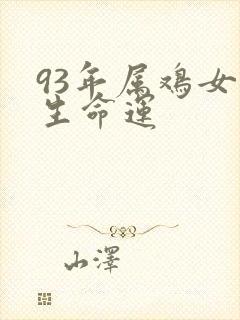 93年属鸡女
生命运
山泽